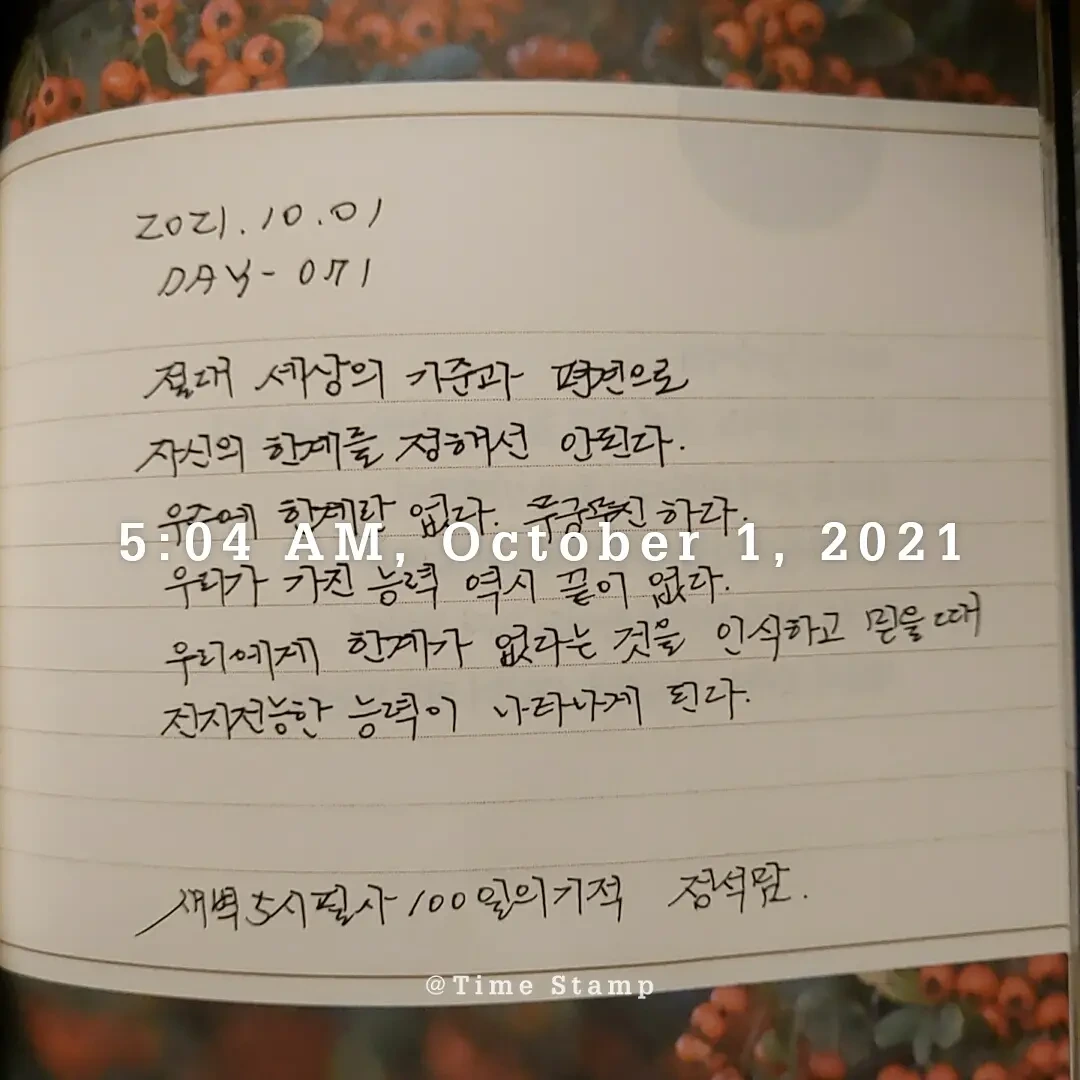 2021.10.01
DAY-071
절대 세상의 기준과 편견으로
자신의 한계를 정해선 안된다.
우주에 한계란 없다. 무궁무진 하다.
5:04 AM, October 1, 2021
우리가 가진 능력 역시 끝이 없다.
우리에게 한계가 없다는 것을 인식하고 믿을때
전지전능한 능력이 나타나게 된다.
새벽5시필사100일의기적 정석맘.
@Time Stamp